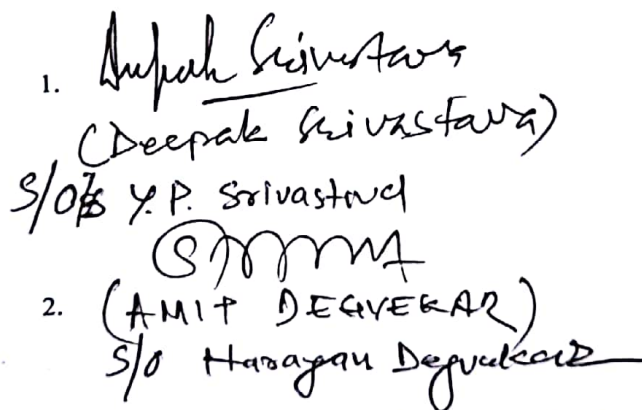 1. Deepak Srivastava
(Deepak Srivastava)
S/O Y.P. Srivastava
2. (AMIT DEGVEKAR)
S/O Narayan Degvekar